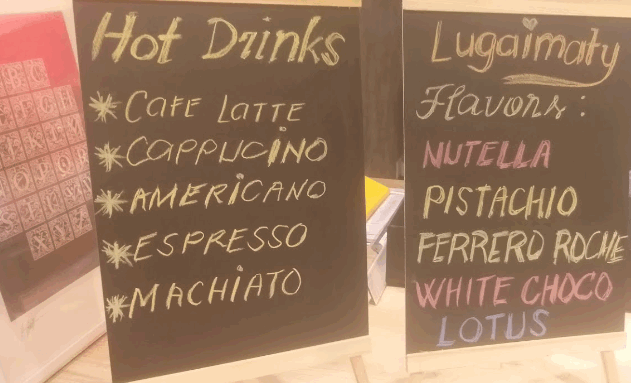 Hot Drinks
CAFE LATTE
CAPPUCINO
AMERICANO
ESPRESSO
MACHIATO
Lugaimaty
Flavors:
NUTELLA
PISTACHIO
FERRERO ROCHE
WHITE CHOCO
LOTUS